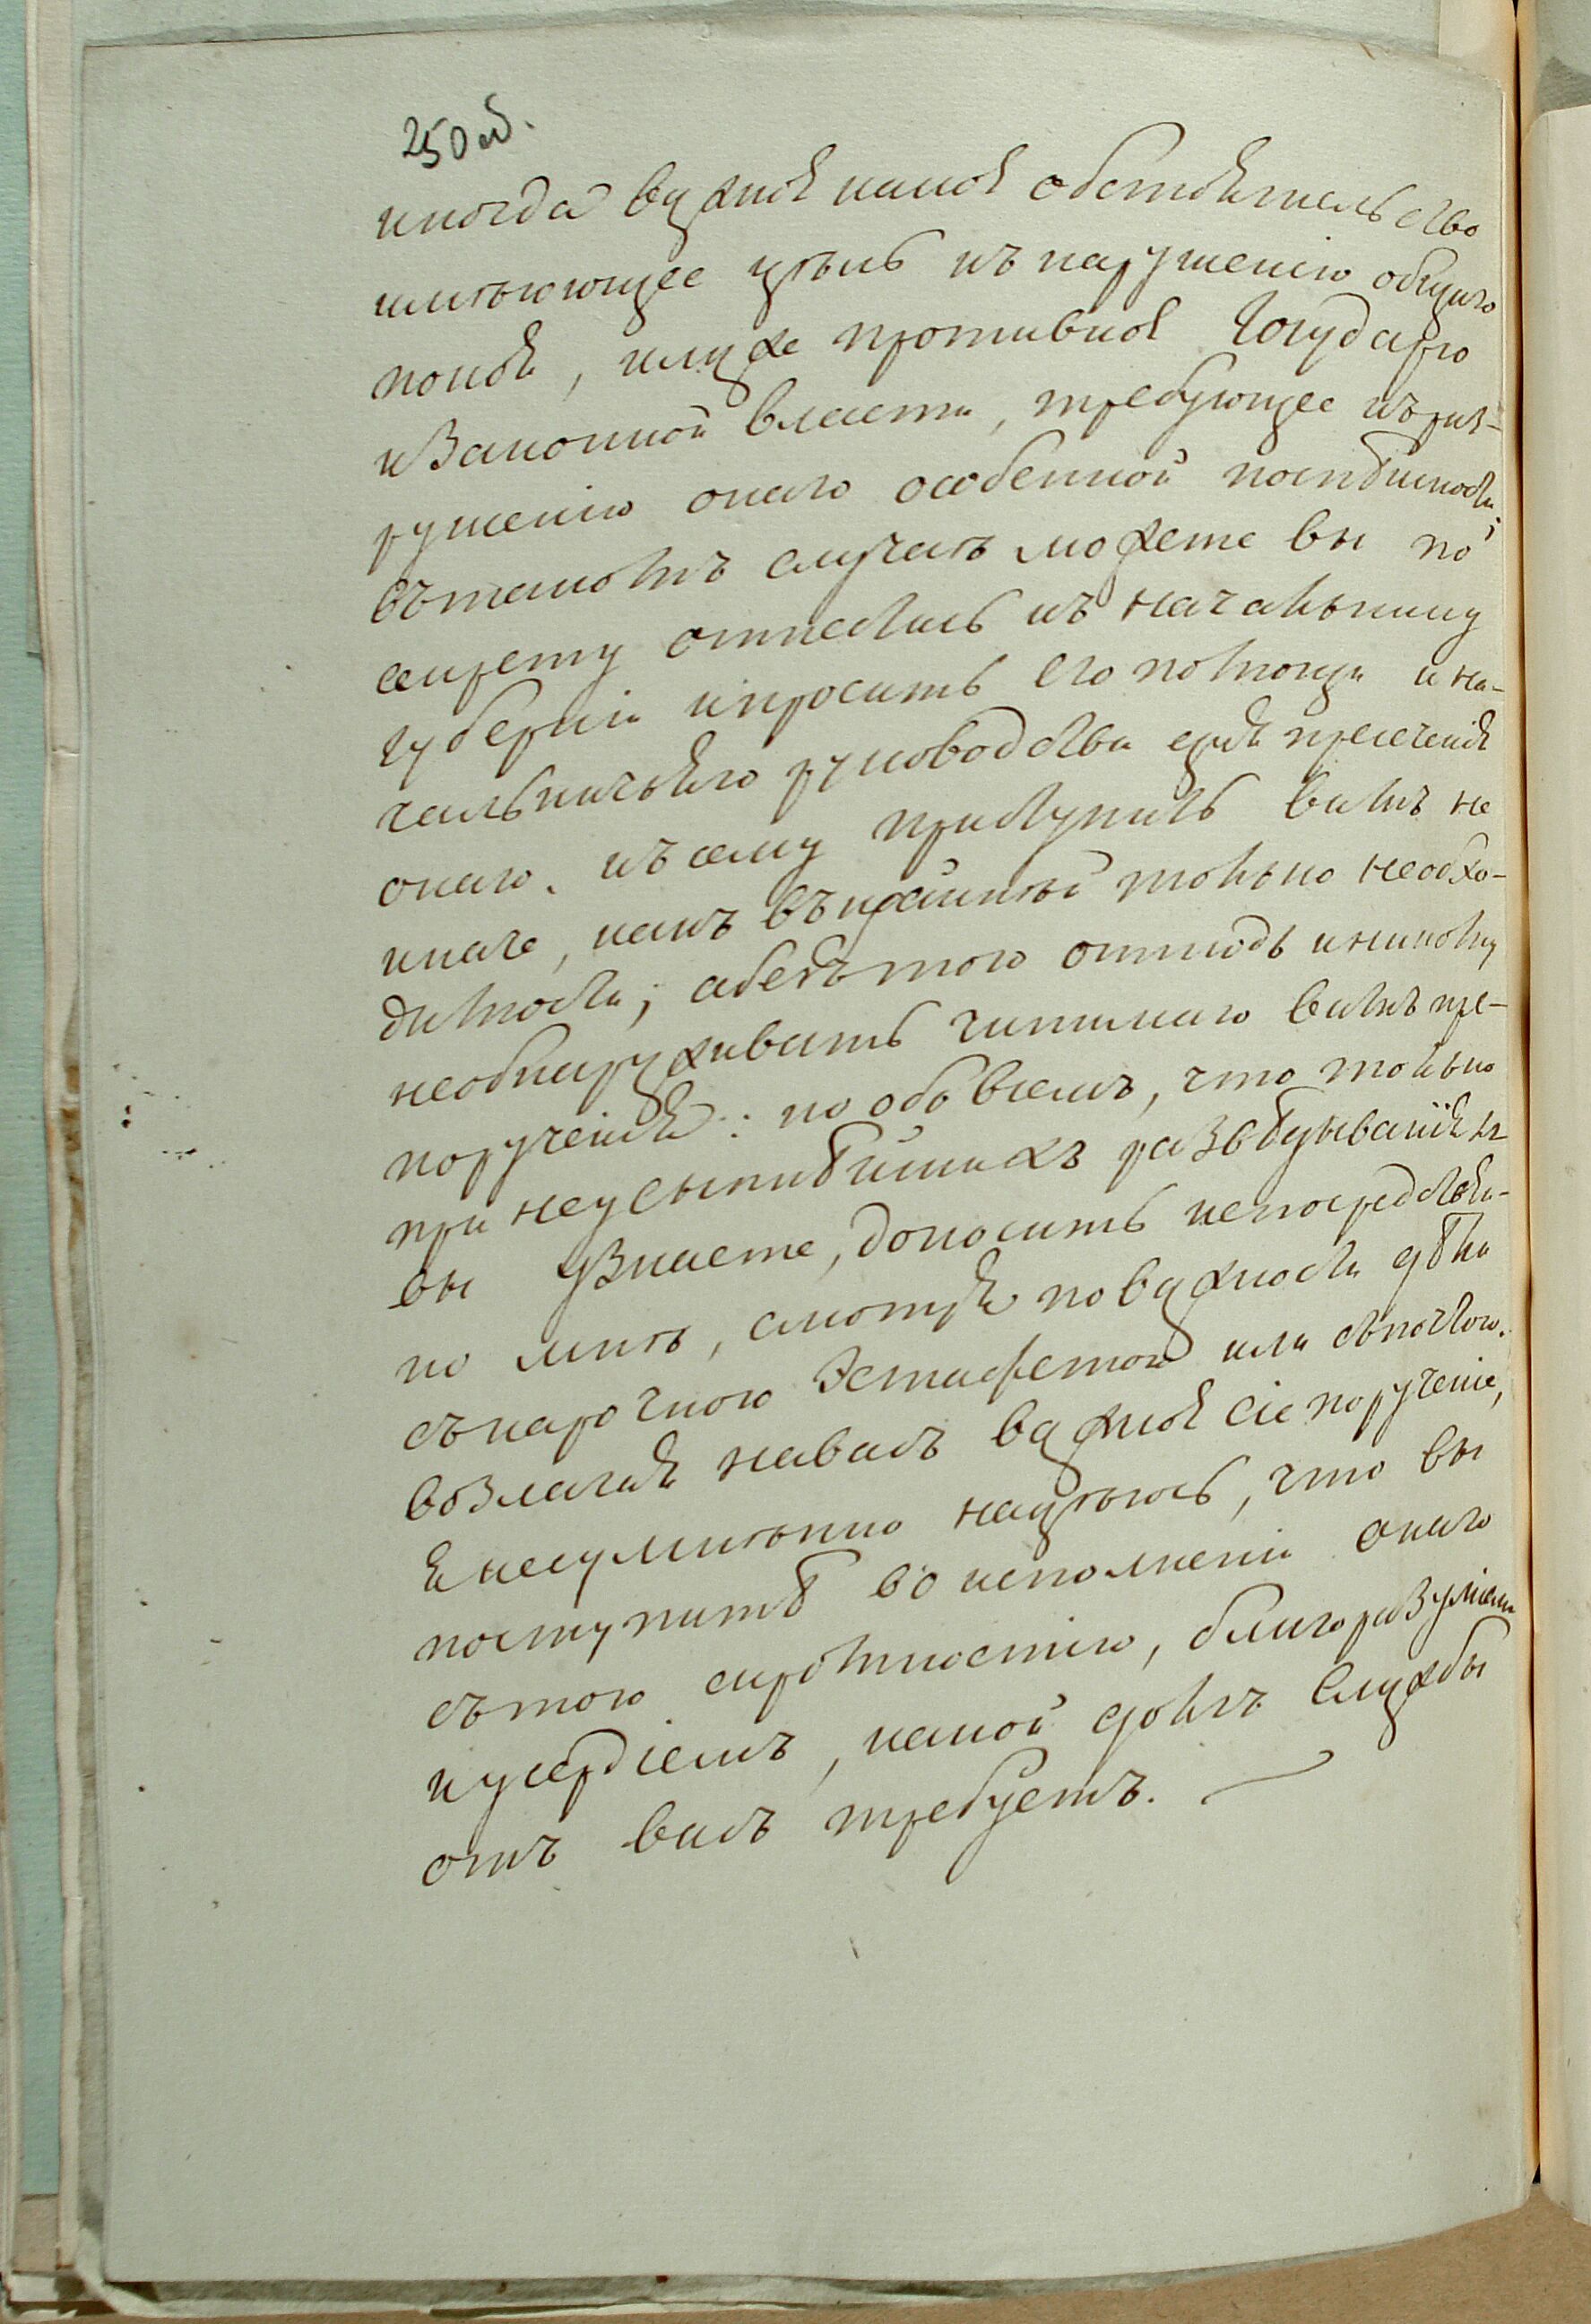 250 об.
иногда важное какое обстоятельство
имѣющее цѣль къ нарушенію общаго
покоя, или же противное Государю
и Законной власти, требующее къ раз-
рушенію онаго особенной поспѣшности;
въ такомъ случаѣ можете вы по
секрету отнестись къ начальнику
губерніи и просить его помощи и на-
чальничьяго руководства для пресеченія
онаго. къ сему приступить вамъ не
иначе, какъ въ крайней только необхо-
димости; а безъ того отнюдь и никому
не обнаруживать чинимаго вамъ пре-
порученія: но обо всемъ, что только
при неусыпнѣйшихъ развѣдываніяхъ
вы узнаете, доносить непосредствен-
но мнѣ, смотря по важности дѣла
съ нарочною Эстафетою или съ почтою.
возлагая на васъ важное сіе порученіе,
я несумнѣнно надѣюсь, что вы
поступите во исполненіи онаго
съ тою скромностію, благоразуміемъ
и усердіемъ, какой долгъ службы
отъ васъ требуетъ.